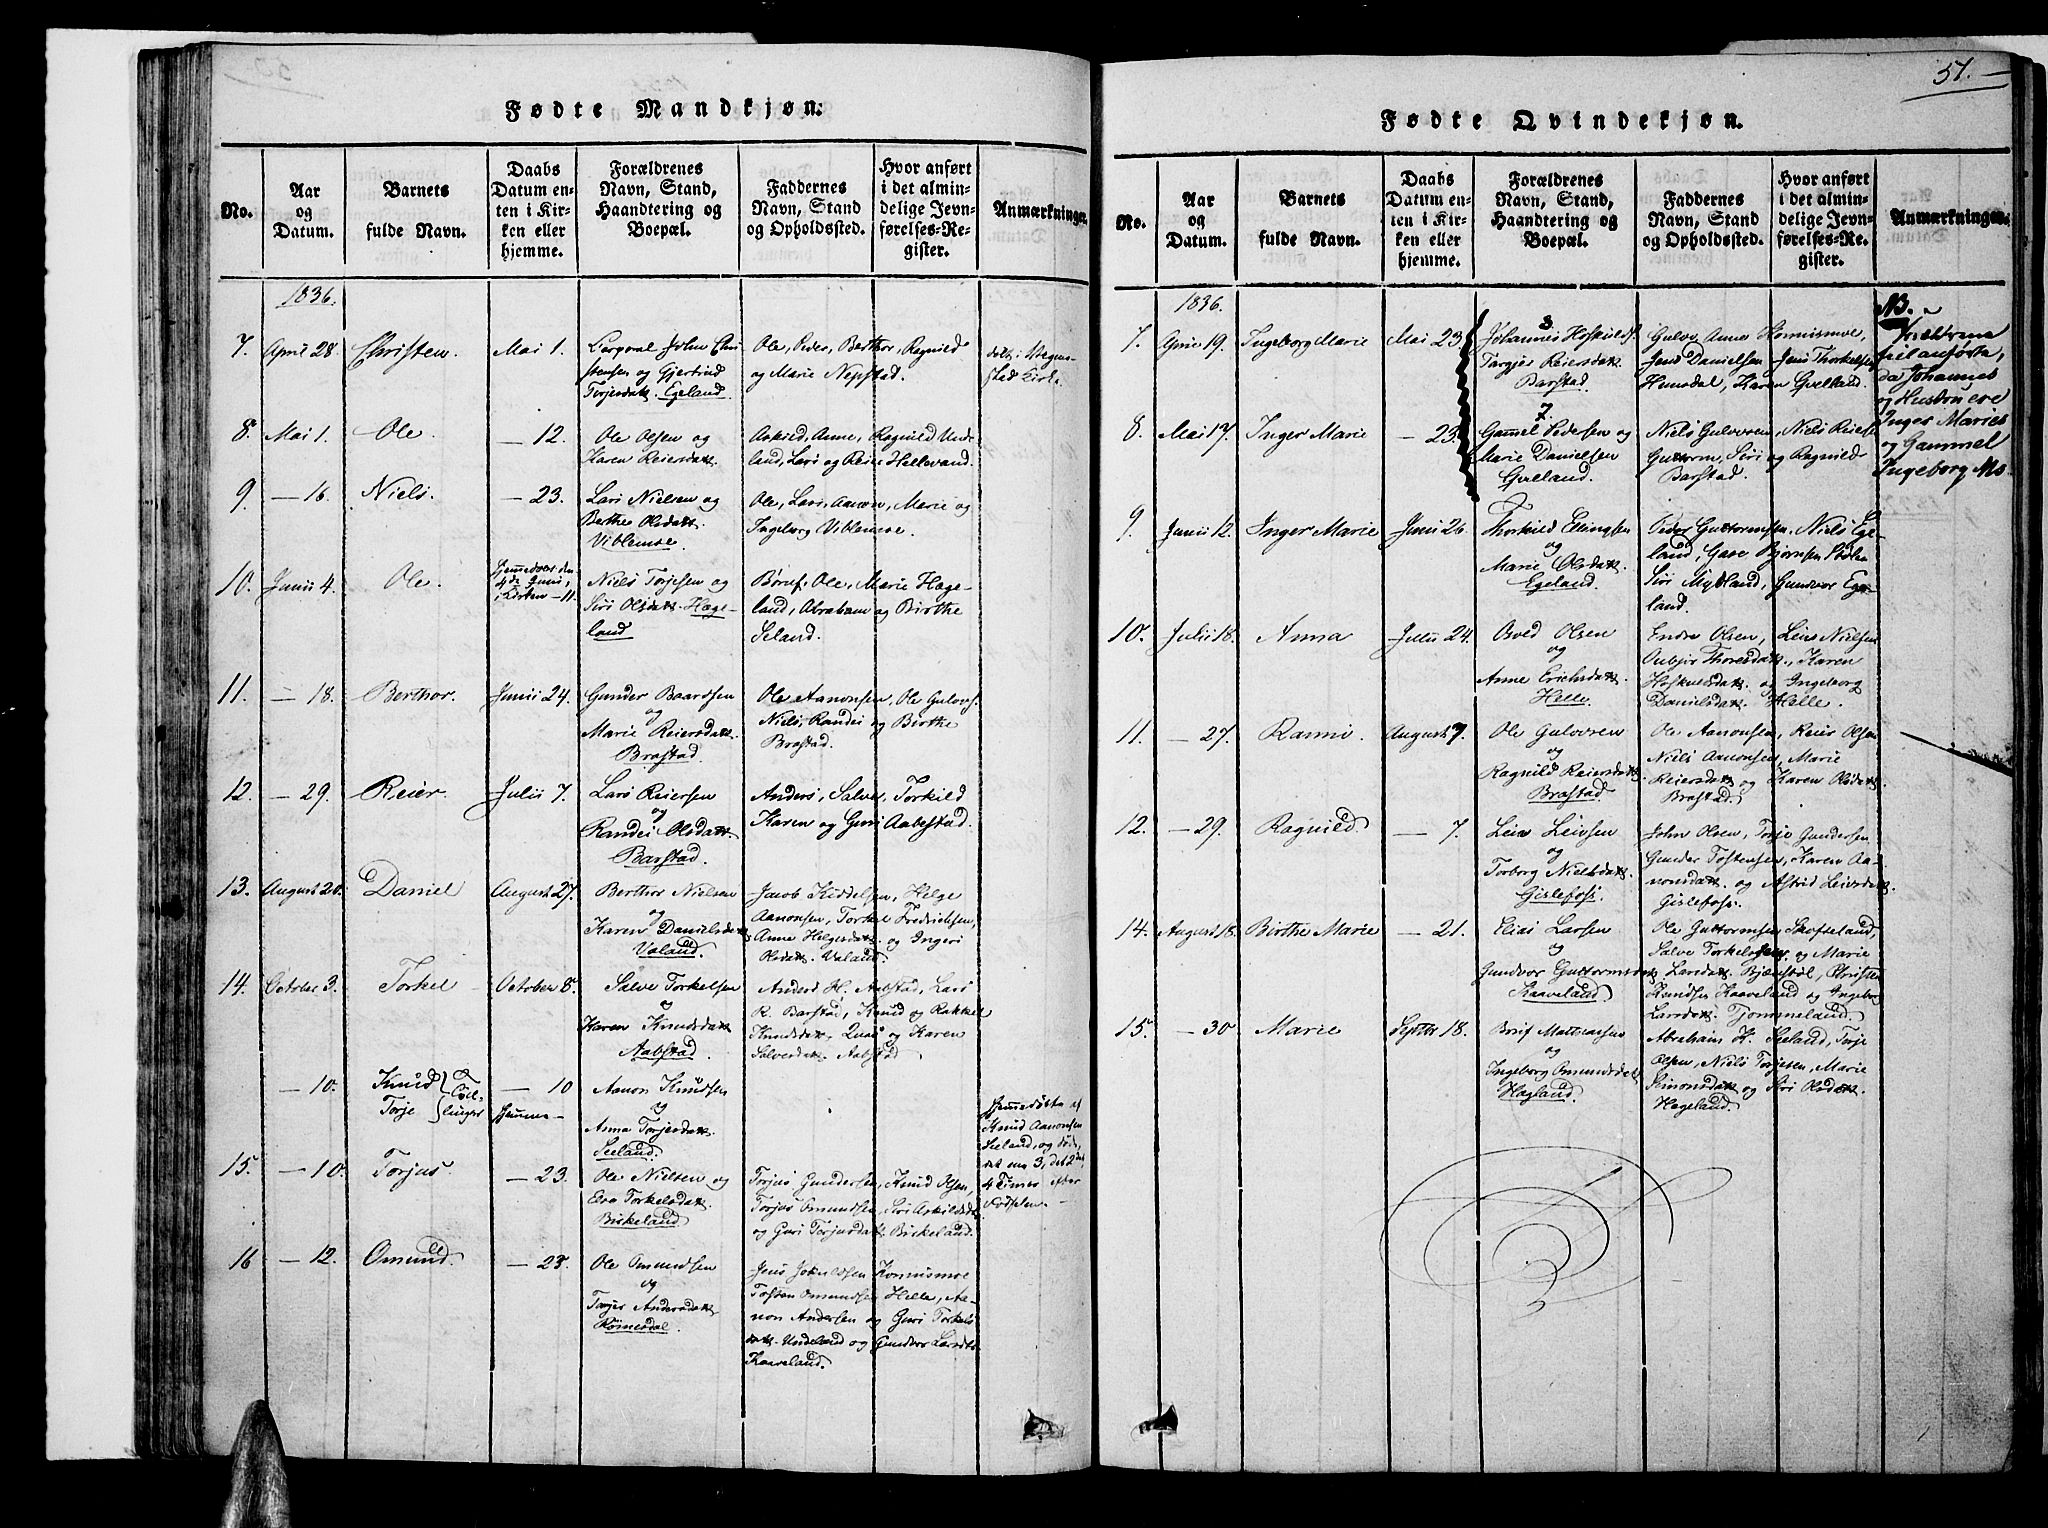 Fødte Mandkjøn.
No.
Aar
og
Datum.
Barnets
fulde Navn.
Daabs
Datum en-
ten i Kir-
ken eller
hjemme.
Forældrenes
Navn, Stand,
Haandtering og
Boepæl.
Faddernes
Navn, Stand
og Opholdssted.
Hvor anført
i det almin-
delige Jevn-
førelses-Re-
gister.
Anmærkninger.
1836.
7.
April 28.
Christen.
Mai 1.
Corporal John Chri
stensen og Gjertrud
Torjesdatt. Egeland.
Ole, Peder, Berthor, Ragnild
og Marie Nepstad.
8.
Mai 1.
Ole.
— 12.
Ole Olsen og
Karen Reiersdatt.
Askild, Anne, Ragnild Unde
land, Lars og Reier Hellevand.
9.
— 16.
Niels.
— 23.
Lars Nielsen og
Berthe Olsdatt.
Viblemoe.
Ole, Lars, Aanon, Marie og
Ingeborg Viblemoe.
10.
Junii 4.
Ole.
hjemmedøbt den
4de Junii,
i Kirken - 11.
Niels Torjesen og
Siri Olsdatt. Hæge-
land
Børuf, Ole, Marie Hæge-
land, Abraham og Birthe
Seland.
11.
— 18.
Berthor.
Junii 24.
Gunder Baardsen
og
Marie Reiersdatt.
Brastad.
Ole Aanonsen, Ole Gulovs.
Niels, Randei og Birthe
Brastad.
12.
— 29.
Reier.
Julii 7.
Lars Reiersen
og
Randei Olsdatt.
Barstad.
Anders, Salve, Torkild
Karen og Guri Aabestad.
13.
August 20.
Daniel
August 27.
Berthor Nielsen
og
Karen Danielsdatt.
Valand.
Jacob Kiddelsen, Helge
Aanonsen, Torkel Fredrichsen,
Anne Helgesdatt. og Ingeri
Olsdatt. Valand.
14.
October 3.
Torkel
October 8.
Salve Torkelsen
og
Karen Knudsdatt
Aabstad.
Anders H. Aabstad, Lars
R. Barstad, Knud og Rakkel
Knudsdatt. Quas og Karen
Salvesdatt. Aabstad
— 10.
Knud
Torje
Tvil-
linger
— 10
hjemme—
Aanon Knudsen
og
Anna Torjesdatt.
Seeland.
hjemedøbte af
Knud Aanonsen
Seeland, og døde,
det ene 3, det 2det
4 Timer efter
Fødselen. —
15.
— 10.
Torjus.
— 23.
Ole Nielsen og
Elen Torkelsdatt.
Birkeland.
Torjus Gundersen, Knud Olsen,
Torjus Omundsen, Siri Askildsdatt.
og Guri Torjusdatt. Birkeland.
16
— 12.
Omund.
— 23.
Ole Omundsen
og
Torjer Andersdatt.
Rømesdal.
Jens Jokumsen Homusmoe
Tosten Omundsen Helle, Aa-
non Andersen og Guri Torkels
datt. Undeland og Gundvor Larsdt.
Kaaveland.
51.
Fødte Qvindekjøn.
No.
Aar
og
Datum.
Barnets
fulde Navn.
Daabs
Datum en-
ten i Kir-
ken eller
hjemme.
Forældrenes
Navn, Stand,
Haandtering og
Boepæl.
Faddernes
Navn, Stand
og Opholdssted.
Hvor anført
i det almin-
delige Jevn-
førelses-Re-
gister.
Anmærkninger.
1836.
7.
April 19.
Ingeborg Marie
Mai 23
8.
Johannes Hoskulds.
Targjer Reiersdatt
Barstad.
Gulov, Anne Homusmoe,
Jens Danielsen, Jens Thorkelsen
Hunsdal, Karen Gvelland.
NB.
Forældrene
feilanførte,
da Johannes
og Hustru ere
Inger Maries
og Gammel
Ingeborg Ms.
8.
Mai 17.
Inger Marie
— 23.
7.
Gamel Pedersen og
Marie Danielsen
Gvelland.
Niels Gulovsen, Niels Reiers
Guttorm, Siri og Ragnild
Barstad.
9.
Junii 12.
Inger Marie
Junii 26.
Thorkild Ellingsen
og
Marie Olsdatt.
Egeland.
Peder Guttormsen, Niels Ege-
land, Gave Bjørnsen Stølen
Siri Mydland, Gundvor Ege-
land.
10.
Julii 18.
Anna
Julii 24.
Osved Olsen
og
Anne Erichsdatt.
Helle.
Endre Olsen, Leiv Nielsen
Oubjør Thoresdatt., Karen
Hoskuldsdatt. og Ingeborg
Danielsdatt. Helle.
11.
— 27.
Ranni.
August 7.
Ole Gulovsen
og
Ragnild Reiersdatt.
Brastad.
Ole Aanonsen, Reier Olsen
Niels Aanonsen, Marie
Reiersdatt. og Karen Olsdatt.
Brastad.
12.
— 29.
Ragnild
— 7.
Leiv Leivsen
og
Torborg Nielsdatt.
Gislefoss.
John Olsen, Torje Gundersen
Gunder Tostensen, Karen Aa-
nonsdatt. og Astrid Leivsdatt.
Gislefoss.
14.
August 18.
Birthe Marie
— 21.
Elias Larsen
og
Gundvor Guttormsdatt
Kaaveland.
Ole Guttormsen Skofteland,
Salve Torkelsen og Marie
Larsdatt. Bjænstøl, Christen
Knudsen Kaaveland og Ingeborg
Larsdatt. Tjommeland.
15.
— 30
Marie
Septbr 18.
Børuf Matthiassen
og
Ingeborg Omundsdatt
Hægland.
Abraham K. Seeland, Torje
Olsen, Niels Torjesen, Marie
Simonsdatt. og Siri Olsdatt.
Hægeland.